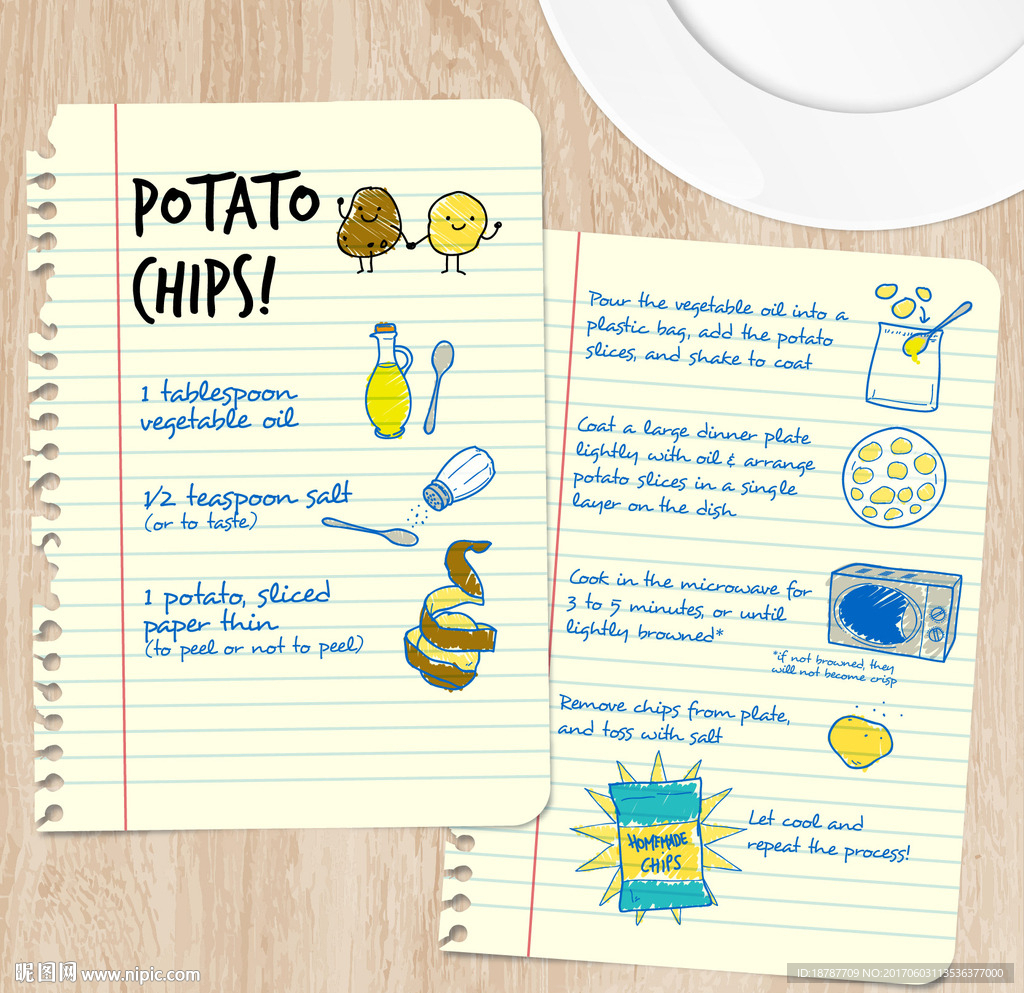 POTATO
CHIPS!
1 tablespoon
vegetable oil
1/2 teaspoon salt
(or to taste)
1 potato, sliced
paper thin
(to peel or not to peel)
Pour the vegetable oil into a
plastic bag, add the potato
slices, and shake to coat
Coat a large dinner plate
lightly with oil & arrange
potato slices in a single
layer on the dish
Cook in the microwave for
3 to 5 minutes, or until
lightly browned*
*if not browned, they
will not become crisp
Remove chips from plate,
and toss with salt
HOMEMADE
CHIPS
Let cool and
repeat the process!
昵图网 www.nipic.com
ID:18787709 NO:20170603113536377000